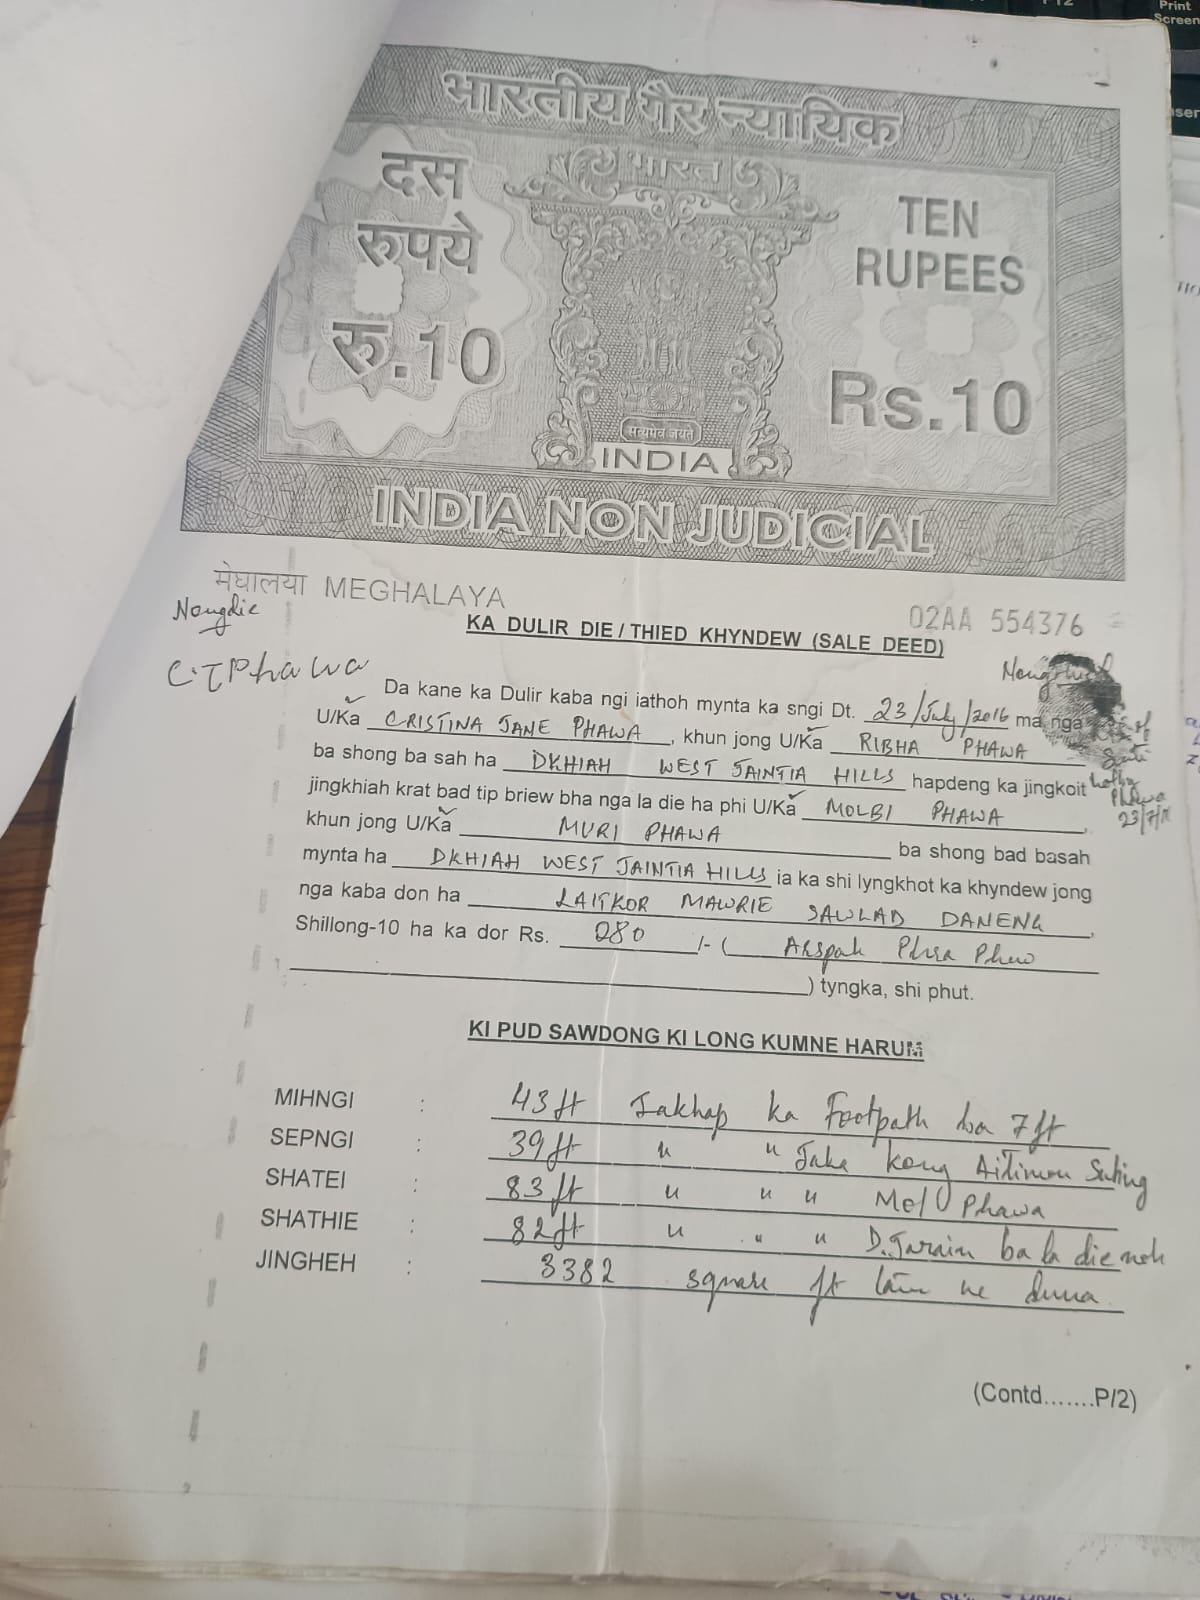 Print
Screen
भारतीय गैर न्यायिक
भारत
दस
रुपये
रु.10
TEN
RUPEES
Rs.10
सत्यमेव जयते
INDIA
INDIA NON JUDICIAL
मेघालया MEGHALAYA
02AA 554376
Nongdie
KA DULIR DIE / THIED KHYNDEW (SALE DEED)
C.J Phawa
Da kane ka Dulir kaba ngi iathoh mynta ka sngi Dt. 23/July/2016 ma nga
U/Ka CRISTINA JANE PHAWA, khun jong U/Ka RIBHA PHAWA
ba shong ba sah ha DKHIAH WEST JAINTIA HILLS hapdeng ka jingkoit
jingkhiah krat bad tip briew bha nga la die ha phi U/Ka MOLBI PHAWA,
khun jong U/Ka MURI PHAWA ba shong bad basah
mynta ha DKHIAH WEST JAINTIA HILLS ia ka shi lyngkhot ka khyndew jong
nga kaba don ha LAITKOR MAWRIE SAWLAD DANENG,
Shillong-10 ha ka dor Rs. 280 /- ( Arspah Phra Phew
) tyngka, shi phut.
Phawa
23/7/16
KI PUD SAWDONG KI LONG KUMNE HARUM
MIHNGI : 43 ft Jakhap ka Footpath ba 7 ft
SEPNGI : 39 ft " " Jaka kong Suting
SHATEI : 83 ft " " " Phawa
SHATHIE : 82 ft " " " D. Tarain ba la die noh
JINGHEH : 3382 square ft lam ne duna.
(Contd.......P/2)